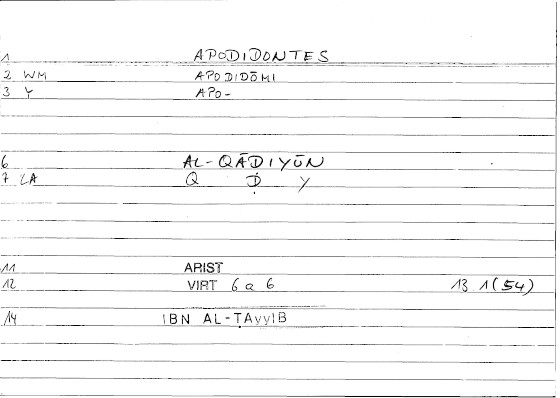 1 APODIDONTES
2 WM APODIDŌMI
3 Y APO-
6 AL-QĀḌIYŪN
7 LA Q Ḍ Y
11 ARIST
12 VIRT 6 a 6 13 1(54)
14 IBN AL-ṬAyyIB